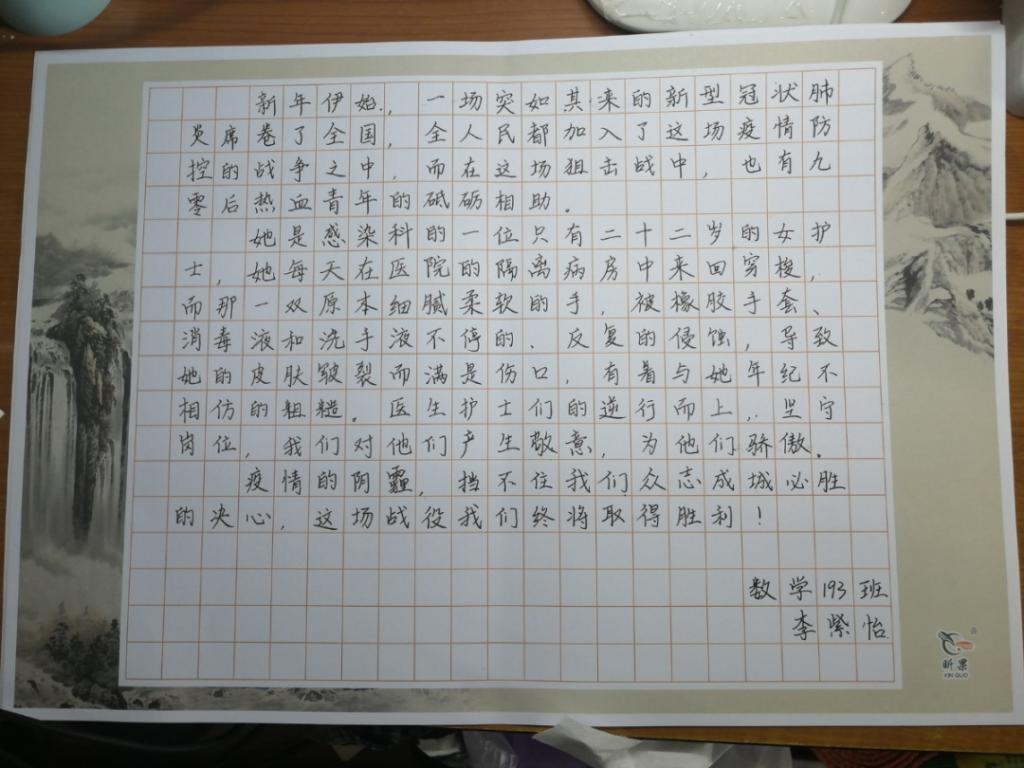 新年伊始，一场突如其来的新型冠状肺
炎席卷了全国，全人民都加入了这场疫情防
控的战争之中，而在这场狙击战中，也有九
零后热血青年的砥砺相助。
她是感染科的一位只有二十二岁的女护
士，她每天在医院的隔离病房中来回穷梭，
而那一双原本细腻柔软的手，被橡胶手套、
消毒液和洗手液不停的、反复的侵蚀，导致
她的皮肤皲裂而满是伤口，有着与她年纪不
相仿的粗糙。医生护士们的逆行而上，坚守
岗位，我们对他们产生敬意，为他们骄傲。
疫情的阴霾，挡不住我们众志成城必胜
的决心，这场战役我们终将取得胜利！
数学193班
李紫怡
昕果
XIN GUO